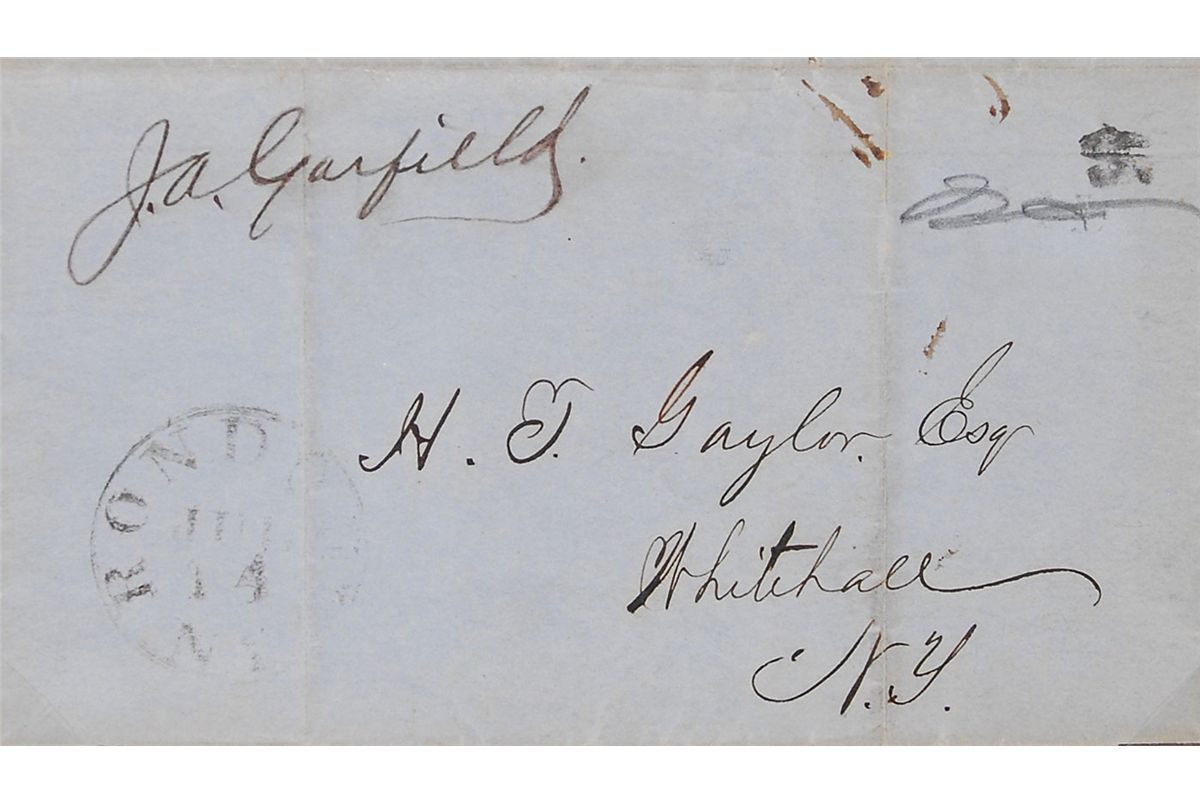 J.A. Garfield.
H. T. Gaylor. Esq
Whitehall
N.Y.
ROND
14